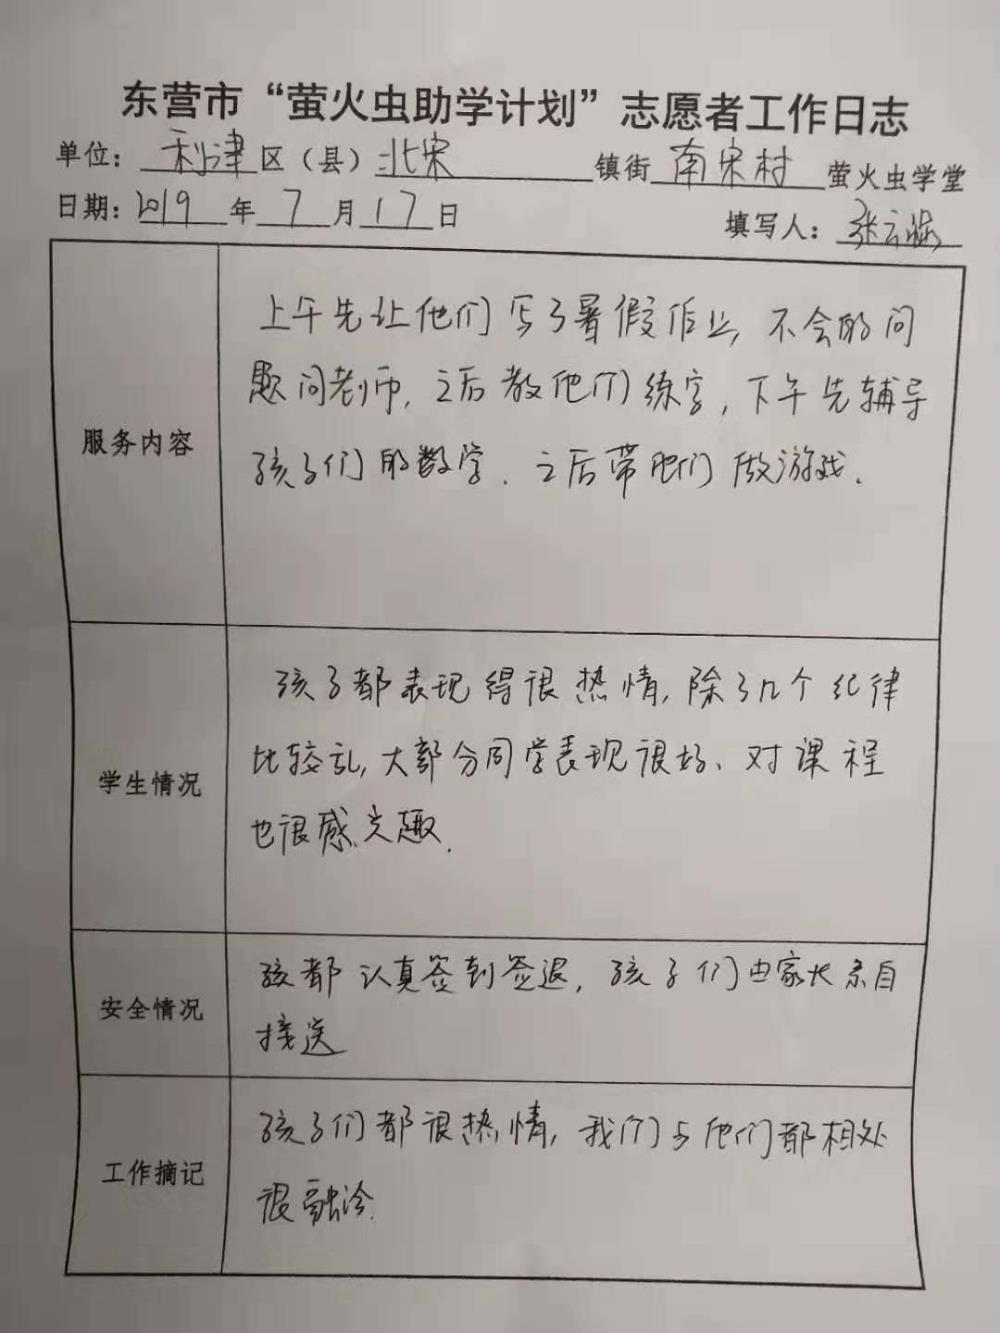 东营市“萤火虫助学计划”志愿者工作日志
单位：利津区（县）北宋镇街南宋村萤火虫学堂
日期：2019年7月17日 填写人：张云涵
服务内容
上午先让他们写了暑假作业，不会的问
题问老师，之后教他们练字，下午先辅导
孩子们的数学．之后带他们做游戏．
学生情况
孩子都表现得很热情，除了几个纪律
比较乱，大部分同学表现很好、对课程
也很感兴趣．
安全情况
孩都认真签到签退，孩子们由家长亲自
接送
工作摘记
孩子们都很热情，我们与他们都相处
很融洽．